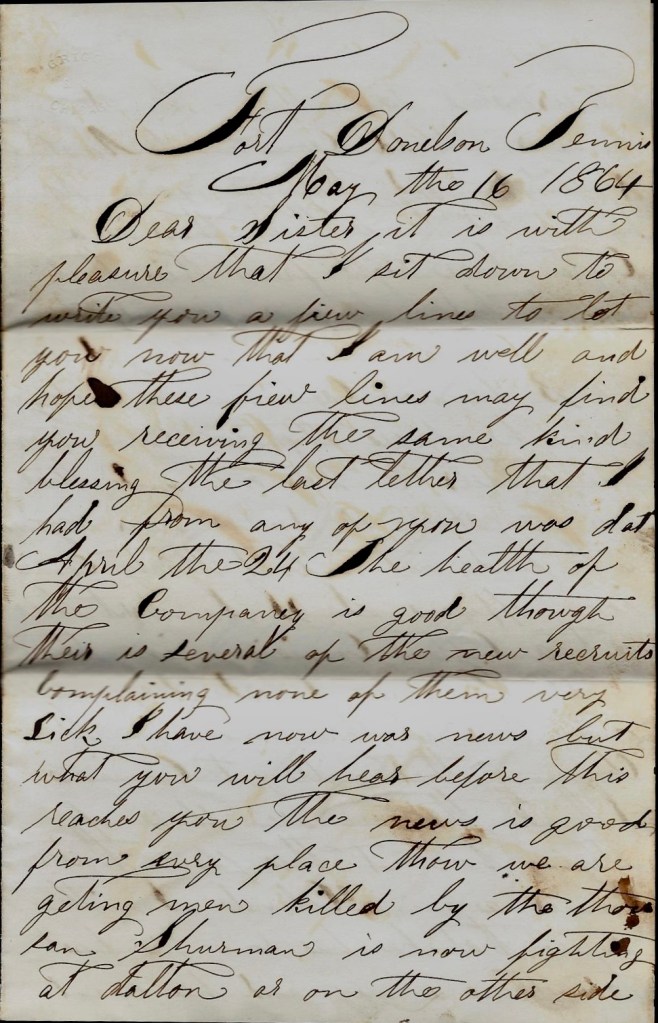 Fort Donelson Tennis
May the 16 1864
Dear Sister it is with
pleasure that I sit down to
write you a fiew lines to let
you now that I am well and
hope these fiew lines may find
you receiving the same kind
blessing the last lether that I
had from any of you was dat
April the 24 The health of
the Companey is good though
their is several of the new recruits
Complaining none of them very
Sick I have now war news but
what you will hear before this
reaches you the news is good
from evry place thow we are
geting men killed by the thou
san Shurman is now fighting
at dalton or on the other side